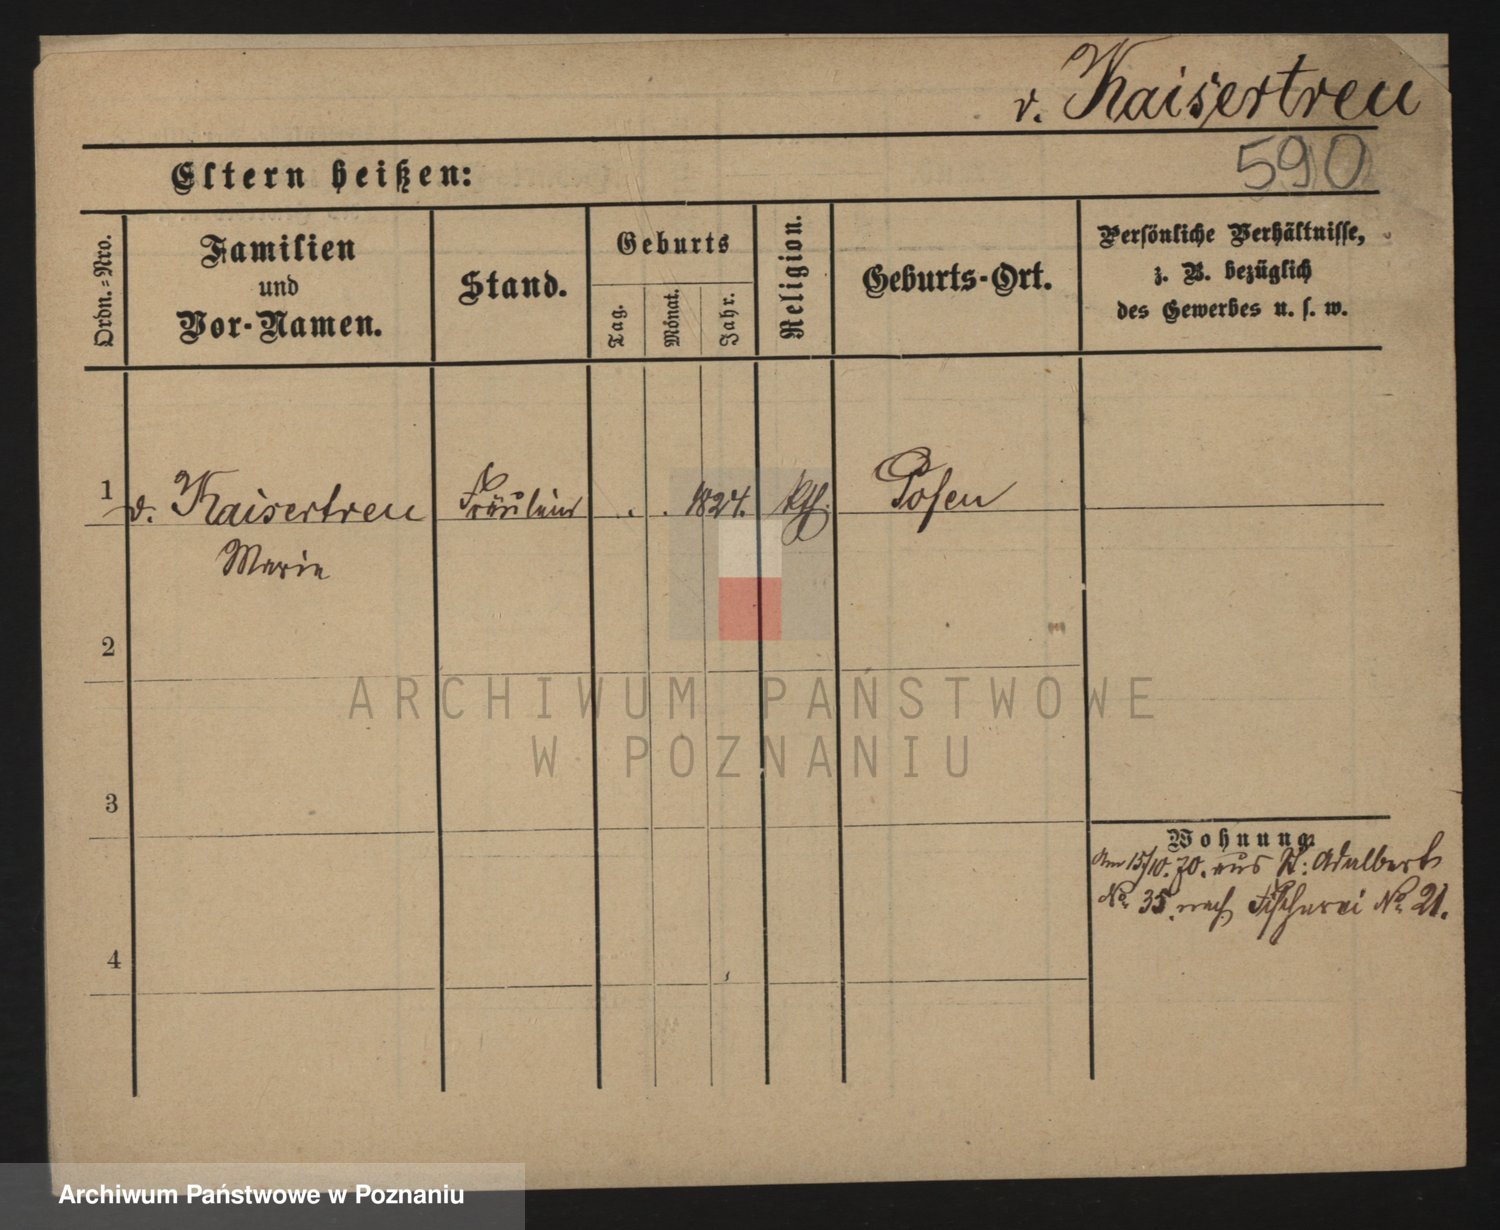 v. Kaisertreu
590
Eltern heißen:
Ordn.-Nro.
Familien
und
Vor-Namen.
Stand.
Geburts
Tag.
Monat.
Jahr.
Religion.
Geburts-Ort.
Persönliche Verhältnisse,
z. B. bezüglich
des Gewerbes u. s. w.
1
v. Kaisertreu
Fräulein
. . 1824.
kth.
Posen
Marie
2
3
4
Wohnung
Am 15/10. 70. aus St: Adalbert
No. 35. nach Fischerei No. 21.
ARCHIWUM PAŃSTWOWE
W POZNANIU
Archiwum Państwowe w Poznaniu